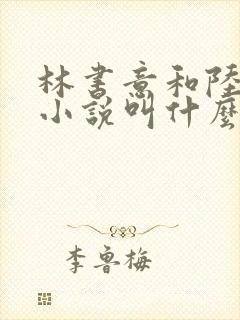 林書意和陸
小說叫什麼
李魯梅